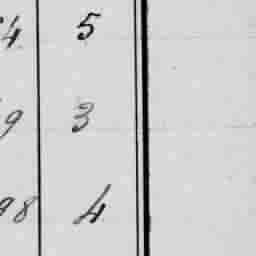 4 5
9 3
98 4